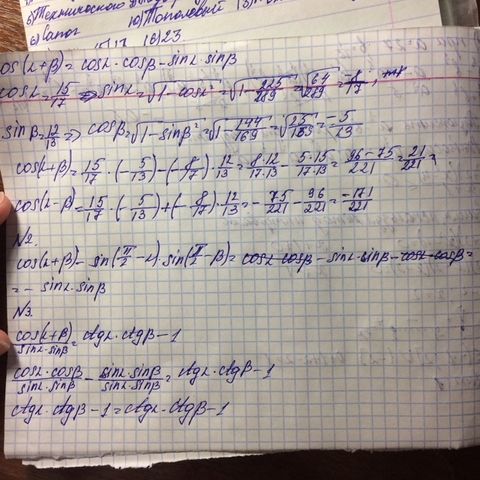 5) Технического
6) Сапог 10) Тополевый
16) 23
cos(α+β) = cosα·cosβ - sinα·sinβ
cosα = 15/17 => sinα = √(1-cosα²) = √(1-225/289) = √(64/289) = -8/17,
sinβ = 12/13 => cosβ = √(1-sinβ²) = √(1-144/169) = √(25/169) = -5/13
cos(α+β) = 15/17·(-5/13) - (-8/17)·12/13 = 8·12/17·13 - 5·15/17·13 = 96-75/221 = 21/221
cos(α-β) = 15/17·(-5/13) + (-8/17)·12/13 = -75/221 - 96/221 = -171/221
№2.
cos(α+β) - sin(π/2-α)·sin(π/2-β) = cosα·cosβ - sinα·sinβ - cosα·cosβ =
= - sinα·sinβ
№3.
cos(α+β)/sinα·sinβ = ctgα·ctgβ - 1
cosα·cosβ/sinα·sinβ - sinα·sinβ/sinα·sinβ = ctgα·ctgβ - 1
ctgα·ctgβ - 1 = ctgα·ctgβ - 1